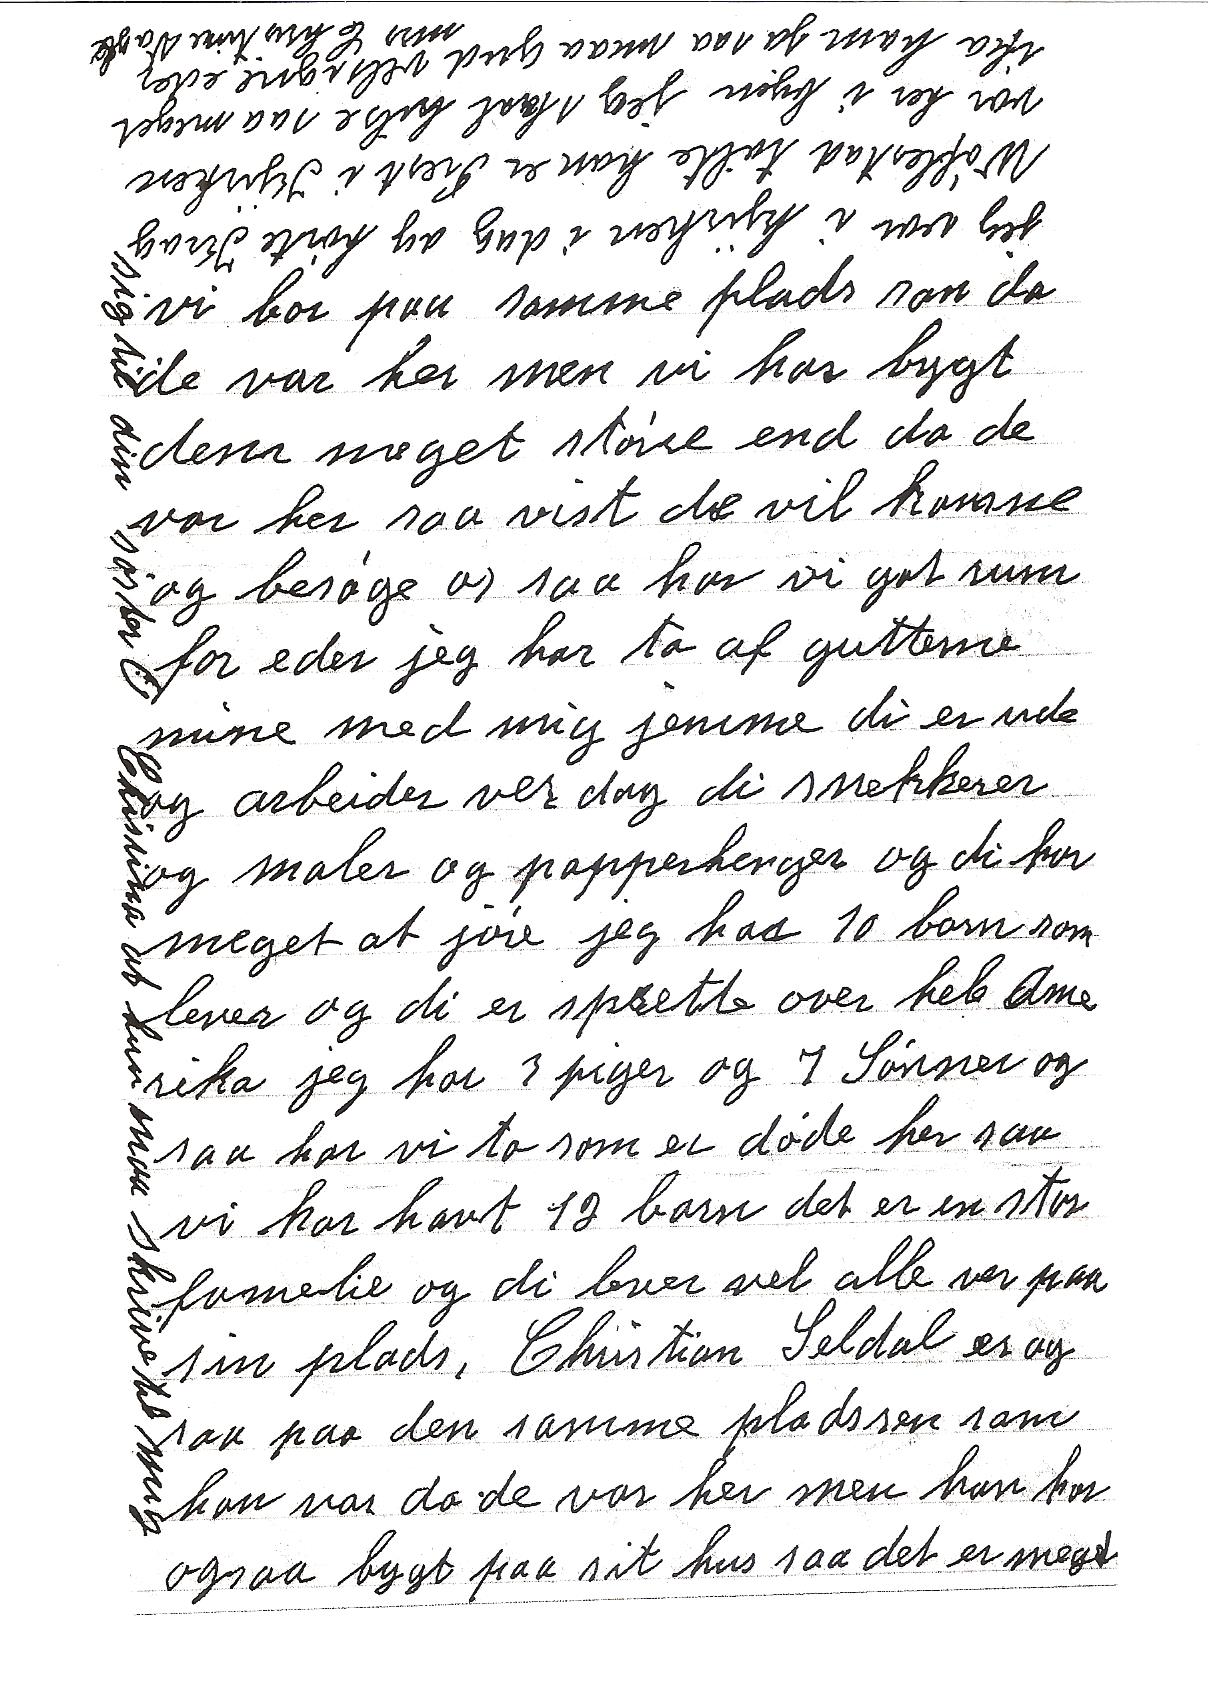 vi bor paa samme plads som da
de var her men vi har bygt
dem meget störe end da de
var her saa vist de vil komme
og besöge os saa har vi got rum
for eder jeg har to af gutterne
mine med mig jemme di er ude
og arbeider ver dag di snekkerer
og maler og papperhenger og di har
meget at jöre jeg har 10 barn som
lever og di er sprette over hele Ame
rika jeg har 3 piger og 7 Sönner og
saa har vi to som er döde her saa
vi har havt 12 barn det er en stor
famelie og di lever vel alle ver paa
sin plads, Christian Seldal er og
saa paa den samme pladssen som
han var da de var her men han har
ogsaa bygt paa sit hus saa det er meget
jeg var i kjirken i dag og hörte
talte han er Prest i Kjirken
vor her i byen jeg skal hilse saa meget
ifra ham ja saa maa gud velsigne eder
mrs Christine
sig til din söster C
Christina at hun maa skrive til mig